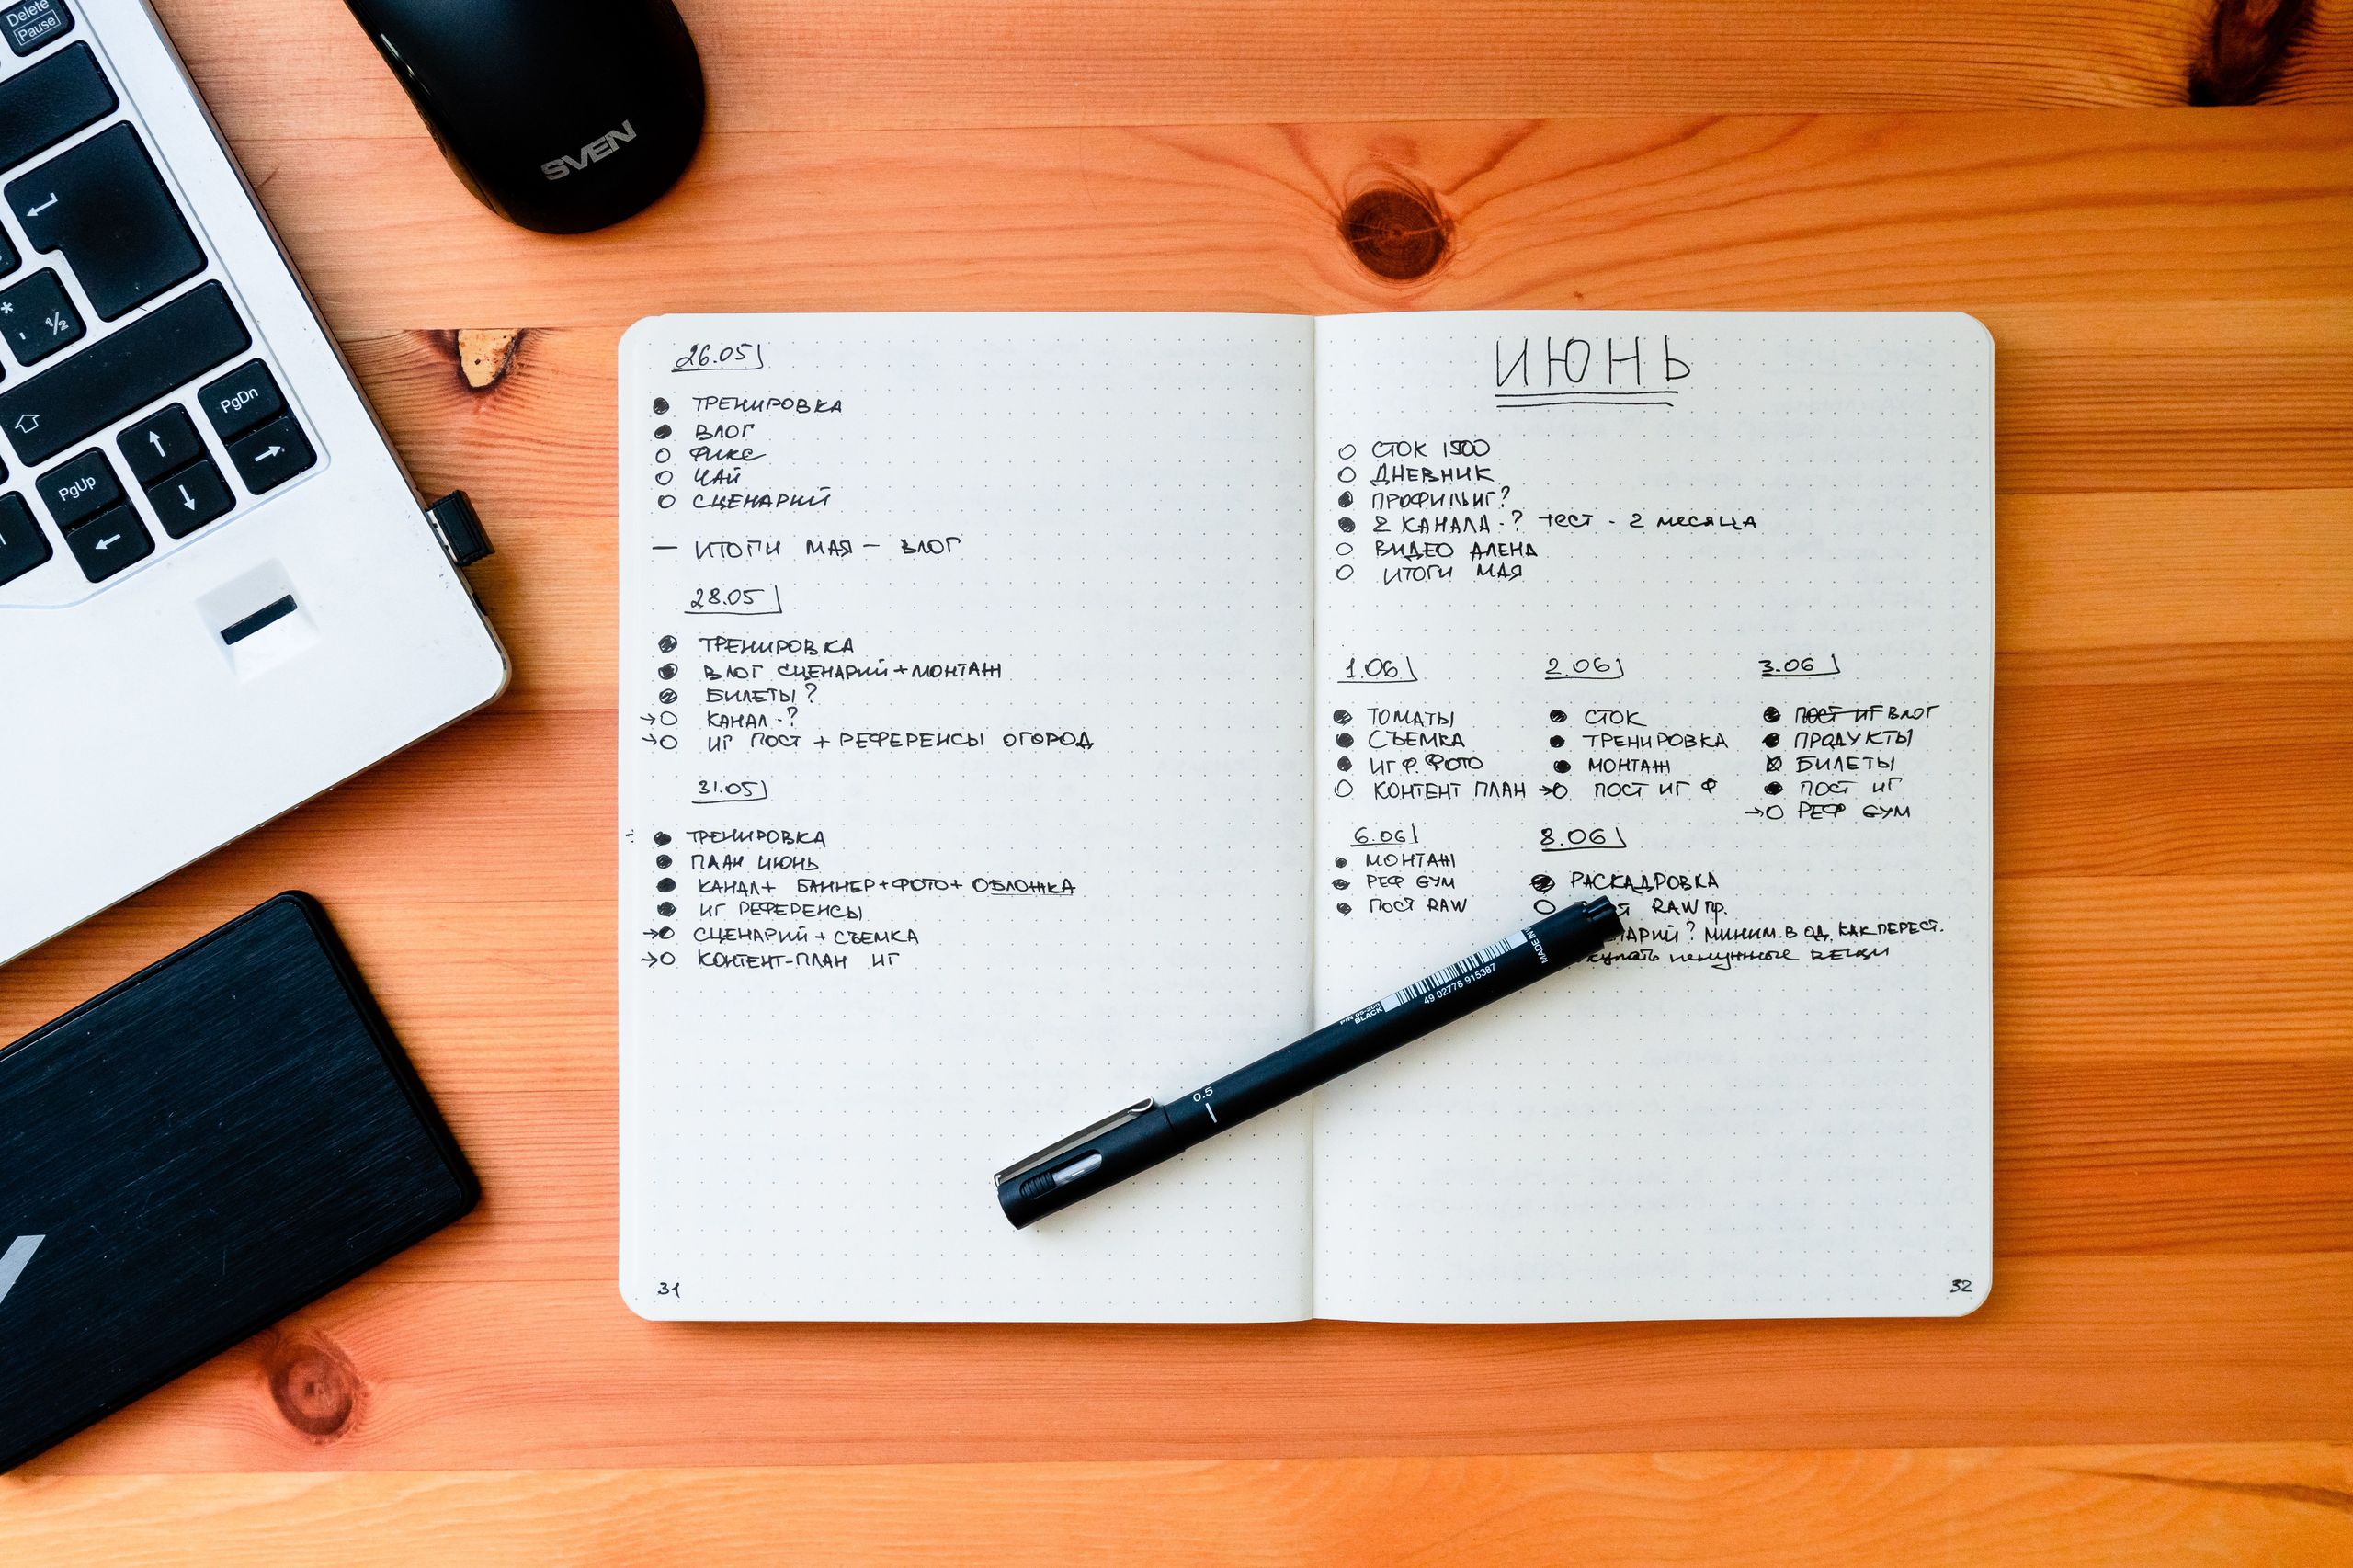 Delete
Pause
½
PgDn
PgUp
SVEN
26.05
ТРЕНИРОВКА
ВЛОГ
ФИКС
ЧАЙ
СЦЕНАРИЙ
— ИТОГИ МАЯ — ВЛОГ
28.05
ТРЕНИРОВКА
ВЛОГ СЦЕНАРИЙ + МОНТАЖ
БИЛЕТЫ?
→ КАНАЛ -?
→ ИГ ПОСТ + РЕФЕРЕНСЫ ОГОРОД
31.05
ТРЕНИРОВКА
ПЛАН ИЮНЬ
КАНАЛ + БАННЕР + ФОТО + ОБЛОЖКА
ИГ РЕФЕРЕНСЫ
→ СЦЕНАРИЙ + СЪЕМКА
→ КОНТЕНТ-ПЛАН ИГ
31
ИЮНЬ
СТОК 1500
ДНЕВНИК
ПРОФИЛЬ ИГ?
2 КАНАЛА -? тест - 2 месяца
ВИДЕО АЛЕНА
ИТОГИ МАЯ
1.06
ТОМАТЫ
СЪЕМКА
ИГ Ф. ФОТО
КОНТЕНТ ПЛАН
2.06
СТОК
ТРЕНИРОВКА
МОНТАЖ
→ ПОСТ ИГ Ф
3.06
ПОСТ ИГ ВЛОГ
ПРОДУКТЫ
БИЛЕТЫ
ПОСТ ИГ
→ РЕФ GYM
6.06
МОНТАЖ
РЕФ GYM
ПОСТ RAW
8.06
РАСКАДРОВКА
RAW пр.
? МИНИМ. В ОД. КАК ПЕРЕСТ.
ненужные вещи
32
MADE IN
49 02778 915387
PIN 05-200
BLACK
0.5